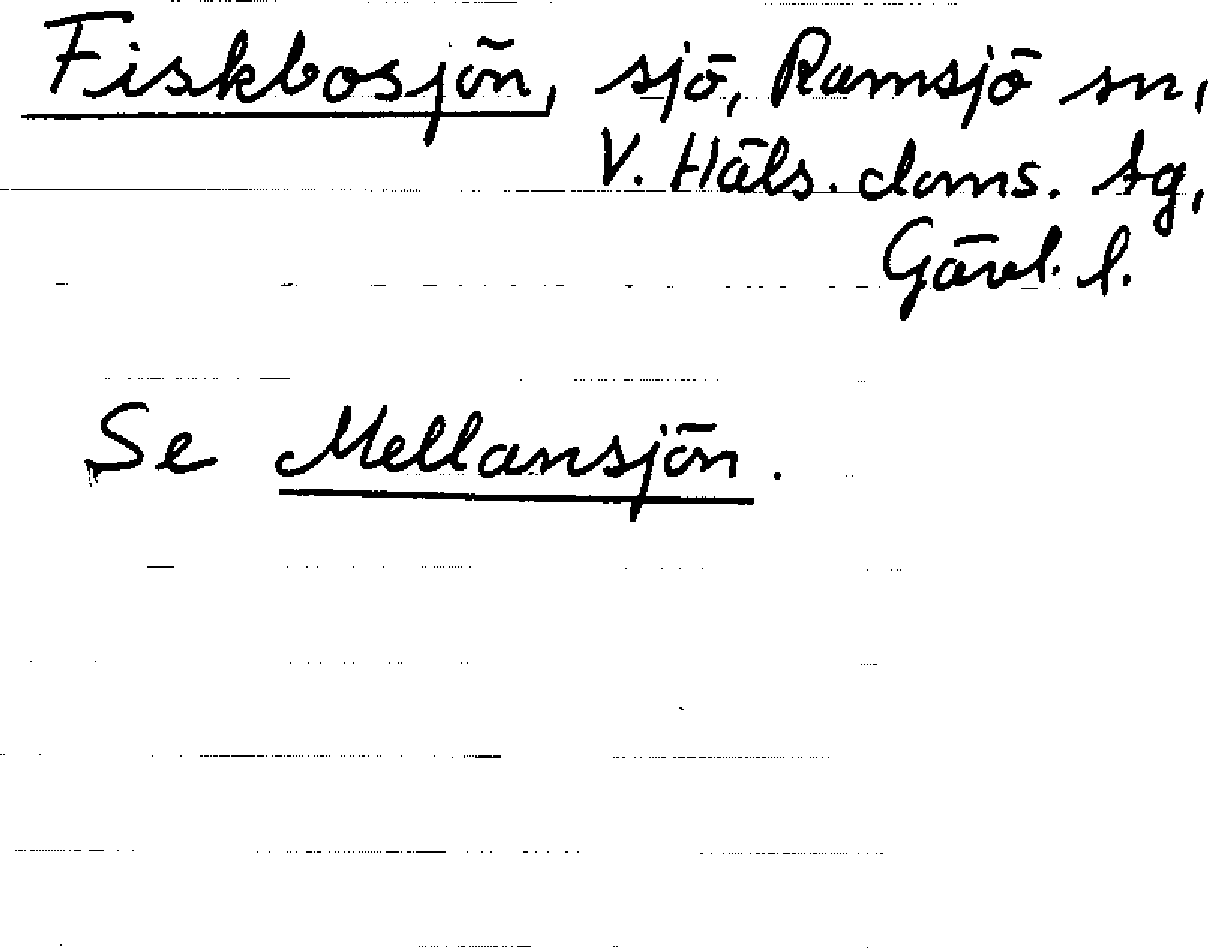 Fiskbosjön, sjö, Ramsjö sn,
V. Häls. doms. tg,
Gävl. l.
Se Mellansjön.